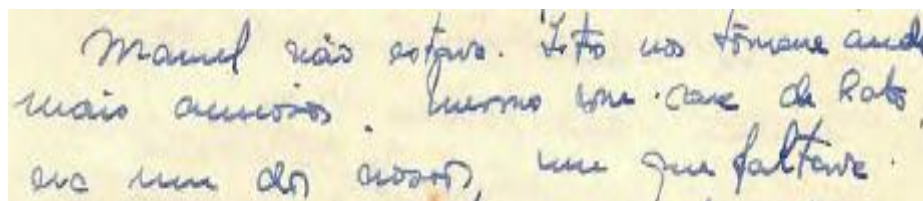 Manuel não estava. Isto nos tornava
mais ansiosos. Mesmo com cara de Rato,
era um dos nossos, um que faltava.